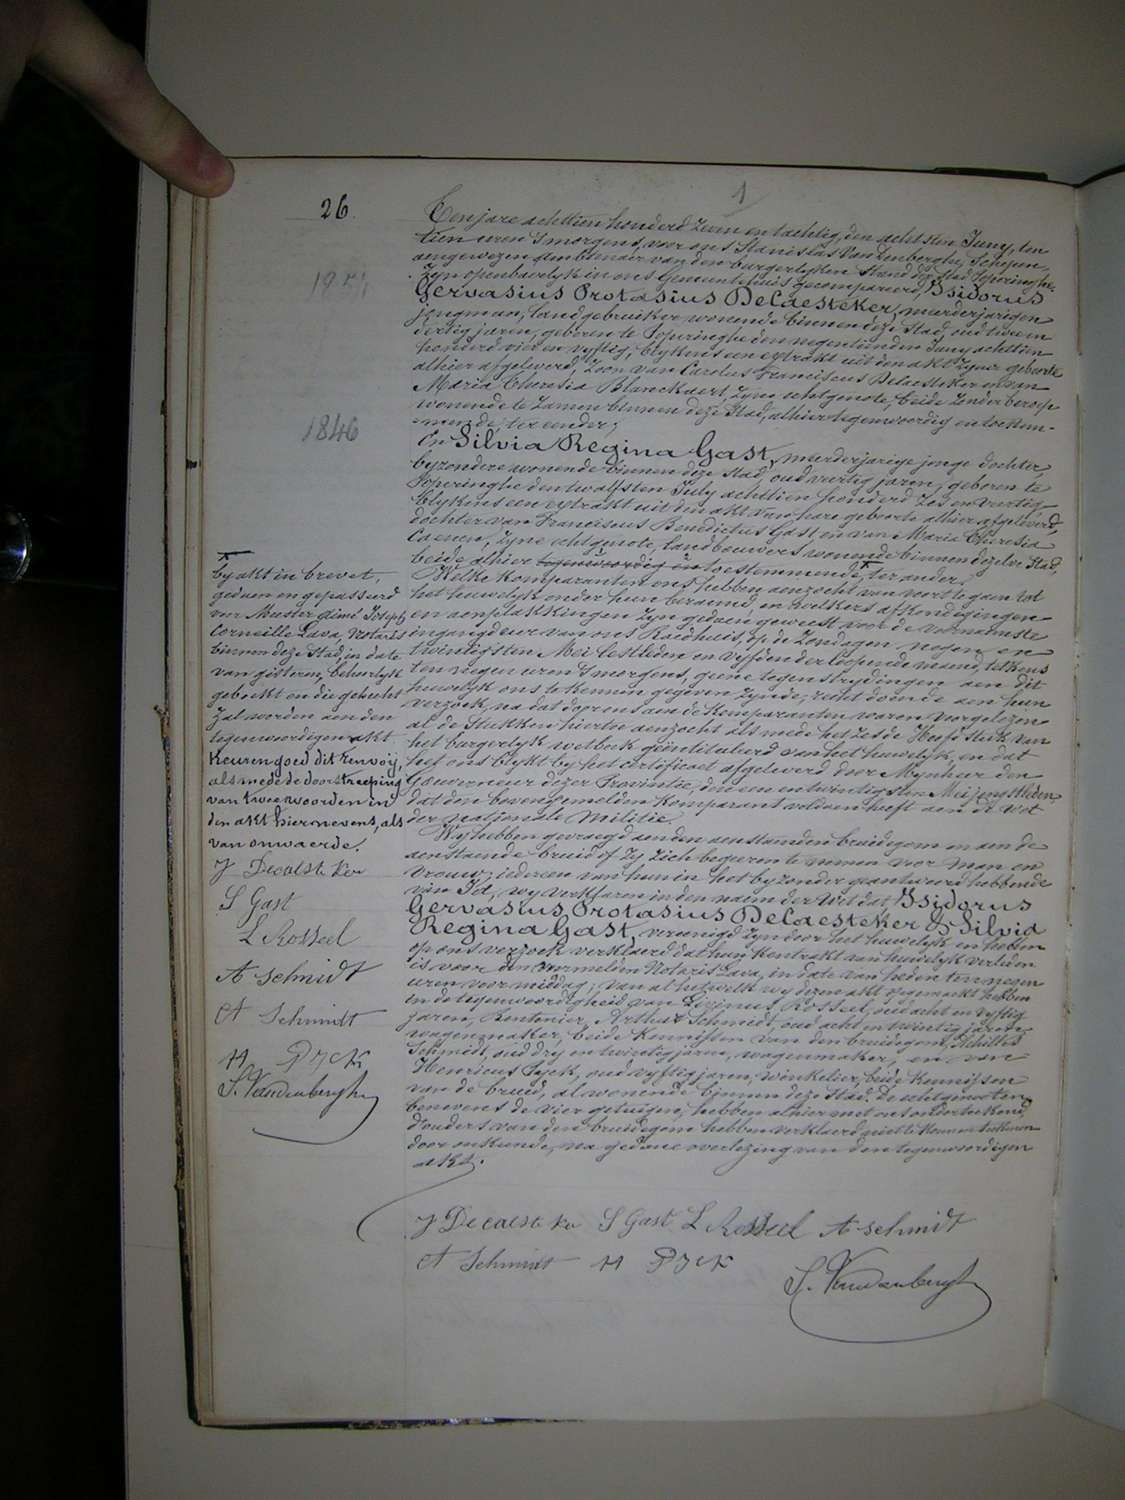 1
26.
Ten jare achttien honderd zeven en tachtig, den achtsten Juny, ten
tien uren 's morgens, voor ons Stanislas Van Denberghe, Schepen,
aengewezen ambtenaar van den burgerlyken stand der stad Poperinghe,
Zyn openbaerlyk in ons Gemeentehuis gecompareerd, Isidorus
1854
Gervasius Protasius Decaesteker, meerderjarigen
jongman, landgebruiker wonende binnen deze stad, oud twee en
dertig jaren, geboren te Poperinghe den negentienden Juny achttien
honderd vier en vyftig, blykens een extrakt uit den akt zyner geboorte
alhier afgeleverd, zoon van Carolus Franciscus Decaesteker en van
Maria Theresia Blanckaert, zyne echtgenote, beide zonder beroep
wonende te zamen binnen deze stad, alhier tegenwoordig en toestem-
mende, ter eender;
1846
En Silvia Regina Gast, meerderjarige jonge dochter,
byzondere wonende binnen deze stad, oud veertig jaren, geboren te
Poperinghe den twalfsten July achttien honderd zes en veertig
blykens een extrakt uit den akt van hare geboorte alhier afgeleverd,
dochter van Franciscus Benedictus Gast en van Maria Theresia
Caenen, zyne echtgenote, landbouwers wonende binnen dezelve stad,
beide alhier tegenwoordig en toestemmende, ter ander.
Welke komparanten ons hebben aenzocht van voort te gaen tot
het huwelyk onder hun beraemd, en welkers afkondigingen
en aenplakkingen zyn gedaen geweest voor de vernaemste
ingangdeure van ons Raedhuis, op de Zondagen negen en
twintigsten Mei lestleden en vyfden der loopende maend, telkens
ten negen uren 's morgens, geene tegenstrydingen aen dit
huwelyk ons te kennen gegeven zynde, recht doende aen hun
verzoek, na dat door ons aen de komparanten waren voorgelezen
al de stukken hiertoe aenzocht als mede het zesde Hoofdstuk van
het burgerlyk wetboek geïntituleerd van het huwelyk, en dat
heeft ons blykt by het certificaet afgeleverd door Mynheer den
Gouverneur dezer Provintie, den een en twintigsten Mei jongstleden,
dat den bovengemelden komparant voldaen heeft aen de wet
der nationale Militie.
Wy hebben gevraegd aen den aenstaenden bruidegom en aen de
aenstaende bruid of zy zich begeeren te nemen voor man en
vrouw; iedereen van hun in het byzonder geantwoord hebbende
van Ja, wy verklaren in den naem der Wet dat Isidorus
Gervasius Protasius Decaesteker & Silvia
Regina Gast, vereenigd zyn door het huwelyk en hebben
op ons verzoek verklaerd dat hun kontrakt van huwelyk verleden
is voor den voormelden Notaris Lava, in date van heden ten negen
uren voormiddag; van al hetwelk wy dezen akt opgemaekt hebben
in de tegenwoordigheid van Livinus Rosseel, oud acht en vyftig
jaren, Rentenier, Arthur Schmidt, oud acht en twintig jaren,
wagenmaker, beide kennissen van den bruidegom, Achilles
Schmidt, oud dry en twintig jaren, wagenmaker, en van
Henricus Pyck, oud vyftig jaren, winkelier, beide kennissen
van de bruid, al wonende binnen deze stad. De echtgenoten
benevens de vier getuigen, hebben alhier met ons onderteekend,
d'ouders van den bruidegom hebben verklaerd niet te konnen teekenen
door onkunde, na gedane overlezing van den tegenwoordigen
akt.
by akt in brevet,
gedaen en gepasseerd
voor Meester Aimé Joseph
Corneille Lava, Notaris
binnen deze stad in date
van gisteren, behoorlyk
geboekt en die gehecht
zal worden aen den
tegenwoordigen akt.
Keuren goed dit renvoy,
alsmede de doorstreeping
van twee woorden in
den akt hiernevens, als
van onwaerde.
J Decaesteker
S Gast
L Rosseel
A schmidt
A Schmidt
H PYCK
S. Vandenberghe
J Decaesteker S Gast L Rosseel A schmidt
A Schmidt H PYCK
S. Vandenberghe